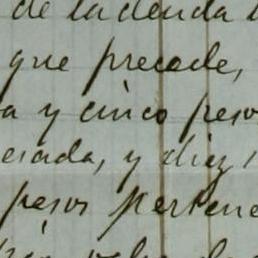 de la deuda
que precede,
a y cinco pesos
esada, y diez
pesos pertene